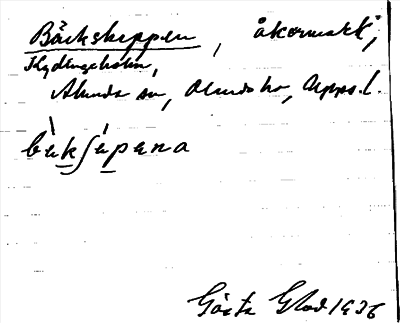 Bäckskeppen, åkermark,
Kydingeholm,
Almunda sn, Olands hd, Upps. l.
bɛ̀kʃɛ́pɛna
Gösta Glad 1936